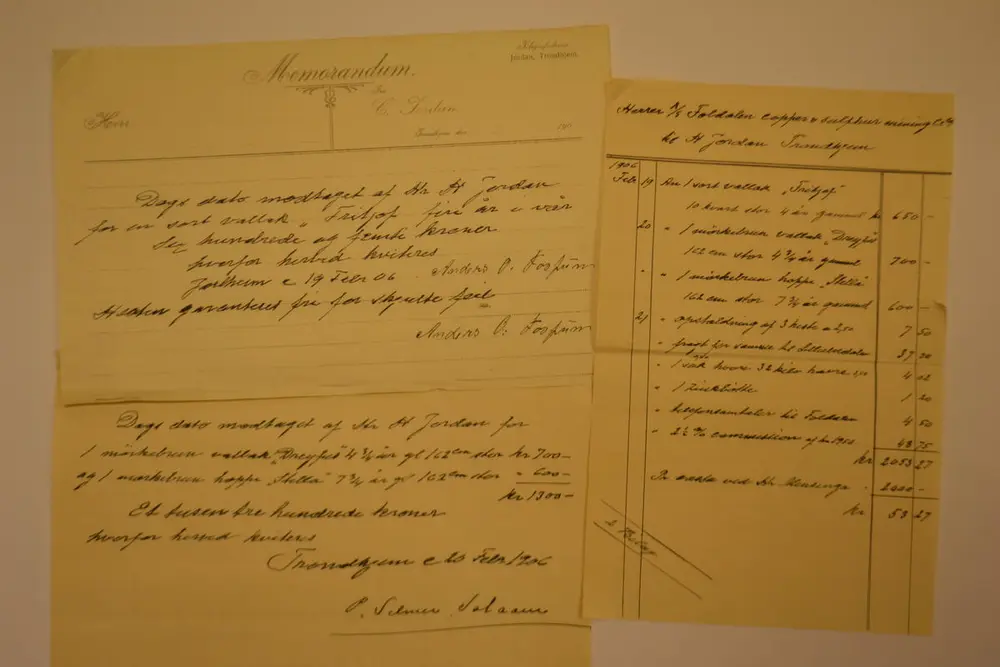 Memorandum.
Jordan, Trondhjem.
Herr
fra
C. Jordan
Trondhjem den 190
Dags dato modtaget af Hr H Jordan
for en sort vallak „Fritjof fire år i vår
Sex hundrede og femti kroner
hvorfor herved kviteres
19 Febr 06 Anders O.
Hesten garenteres fri for skjulte feil
Anders O.
Dags dato modtaget af Hr H Jordan for
1 mörkebrun vallak „Dreyfus" 4 3/4 år gl 162 cm stor Kr 700-
og 1 mörkebrun hoppe „Stella" 7 3/4 år gl 162 cm stor " 600-
Kr 1300-
Et tusen tre hundrede kroner
hvorfor herved kviteres
Trondhjem d 20 Febr 1906
P. Selmer
Herrer A/S Foldalen copper & sulphur mining
til H Jordan Trondhjem
1906
Febr 19 An 1 sort vallak „Fritjof"
10 kvart stor 4 år gammel kr 650 -
20 " 1 mörkebrun vallak „Dreyfus"
162 cm stor 4 3/4 år gammel 700 -
" " 1 mörkebrun hoppe „Stella"
162 cm stor 7 3/4 år gammel 600 -
21 " opstaldning af 3 heste a 2,50 7 50
" fragt for samme til Lilleelvedalen 37 20
" 1 sæk havre 32 kilo havre 4 02
" 1 1 20
" telefonsamtaler til Foldalen 4 50
" 2½ % commission af kr 1950 48 75
Kr 2053 27
ved Hr 2000 -
Kr 53 27
2 Bilag